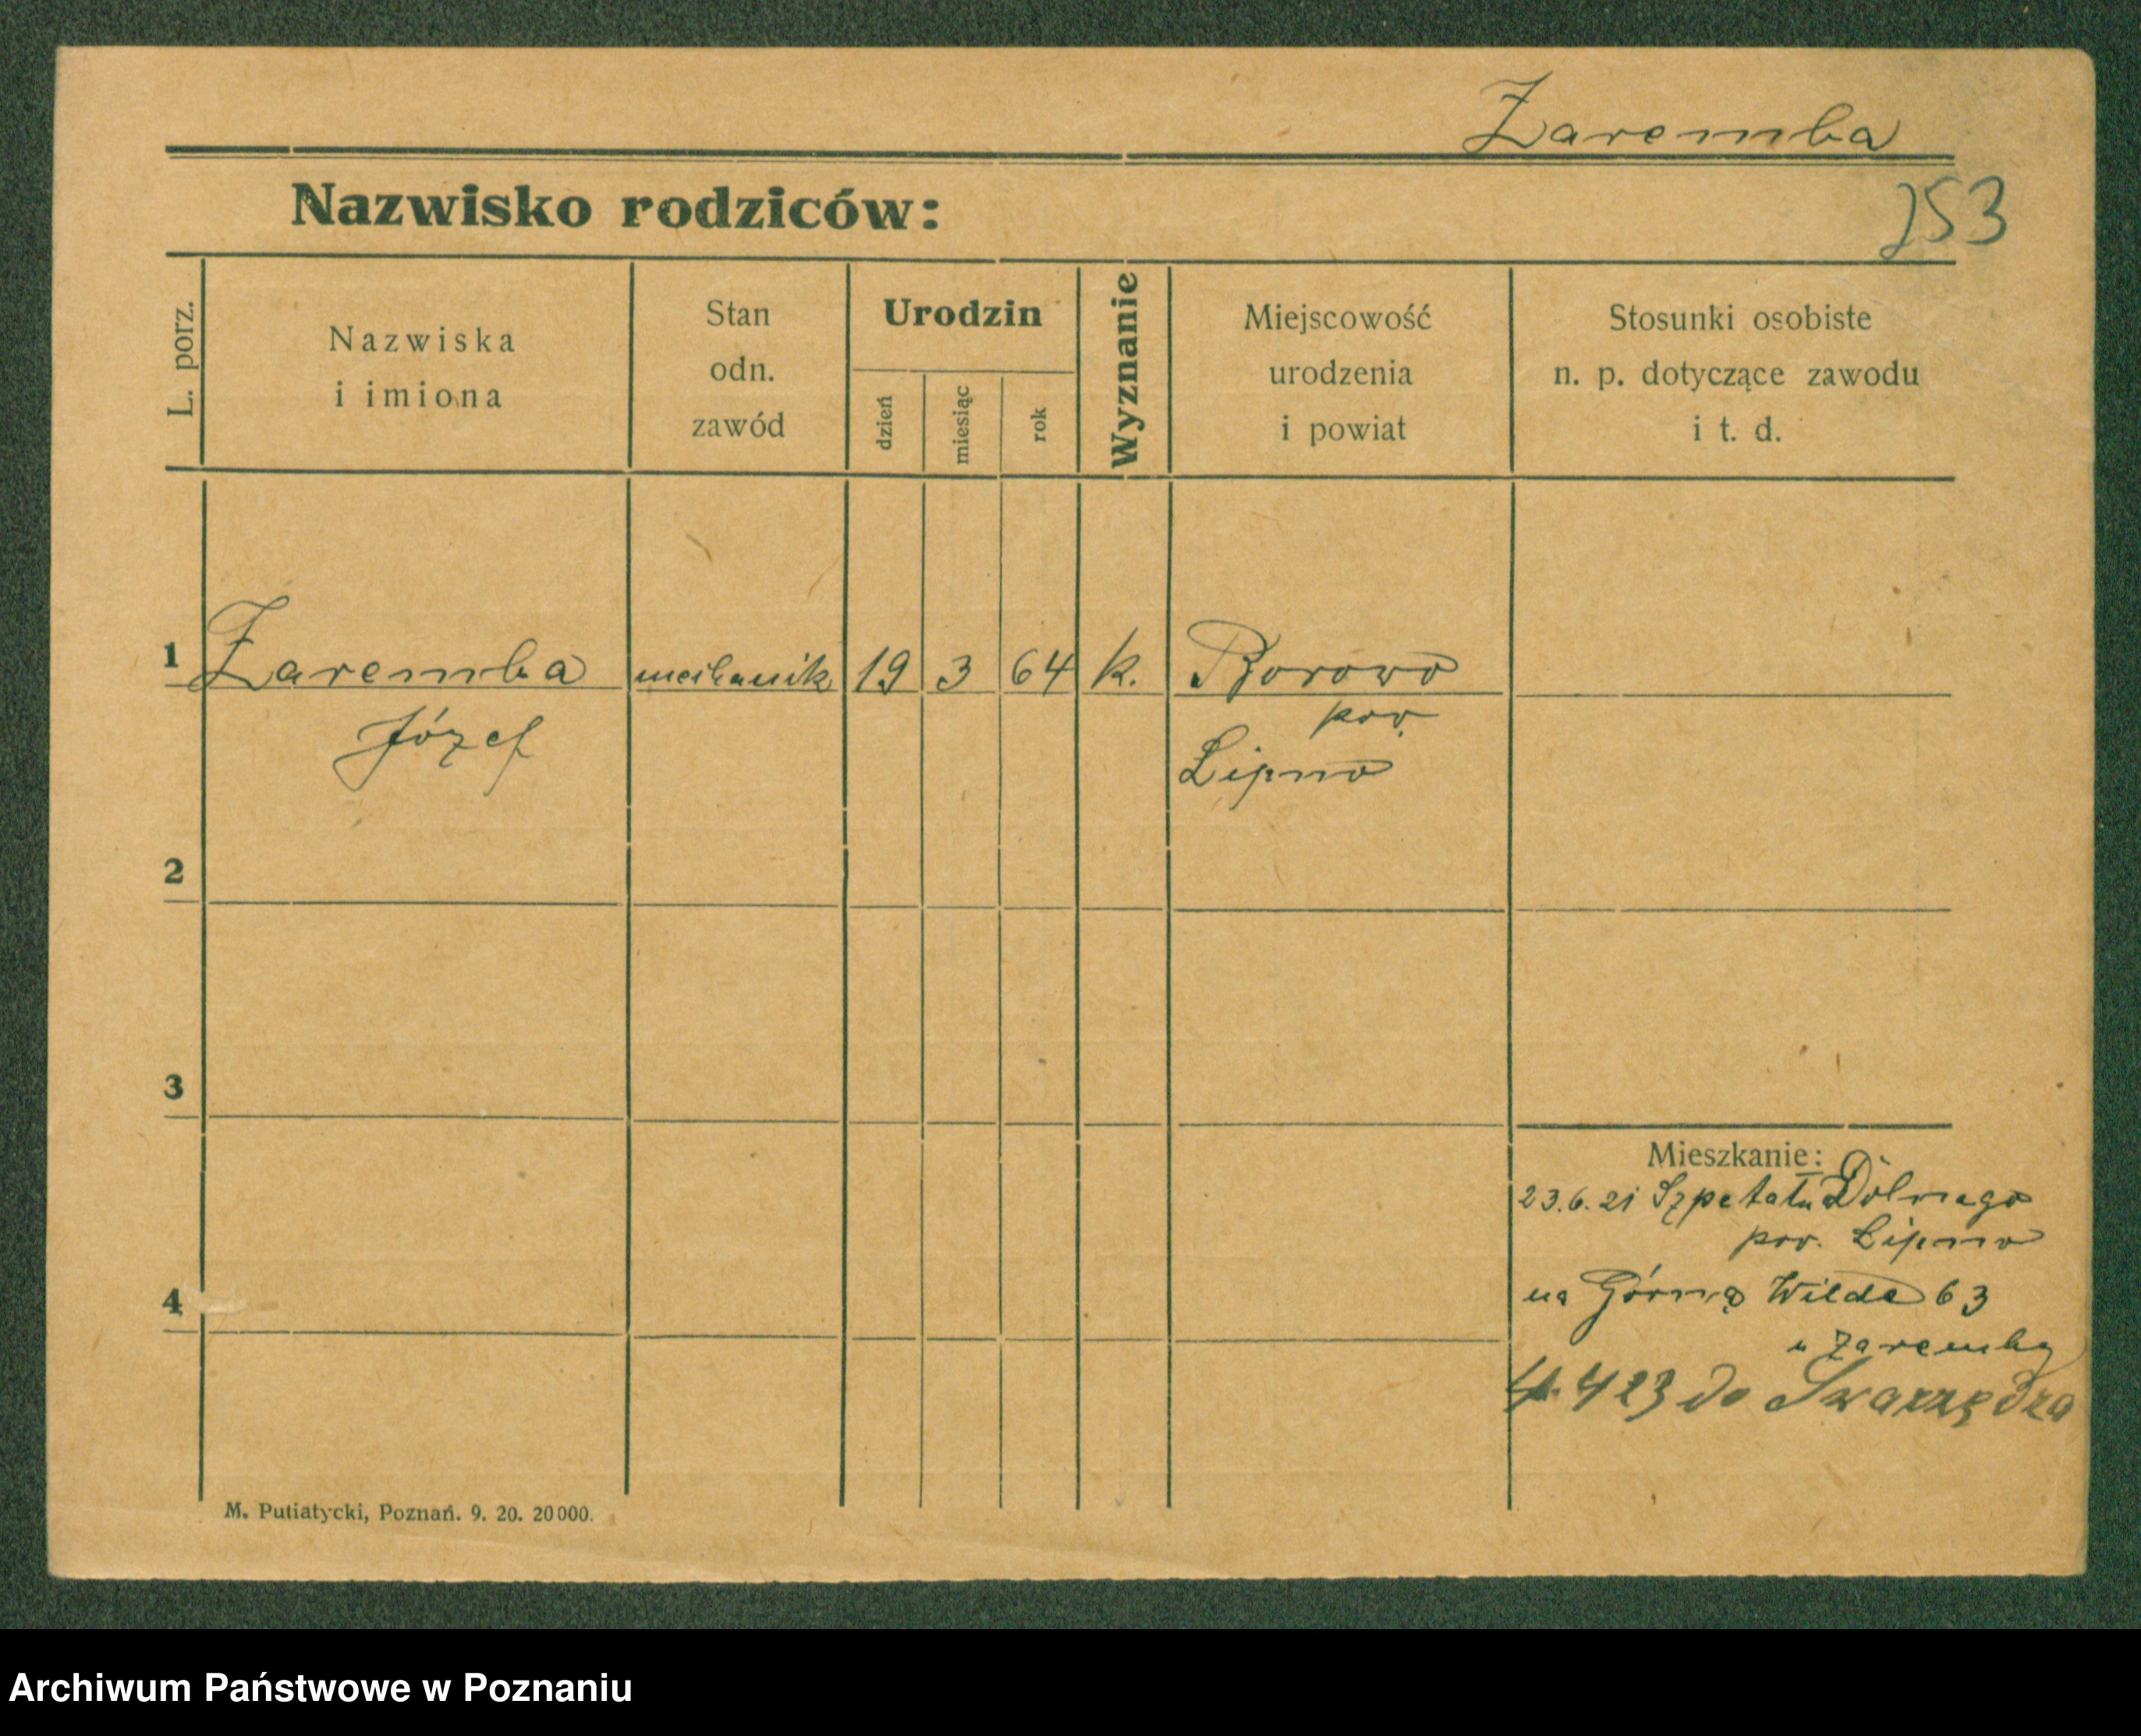 Zaremba
253
Nazwisko rodziców:
L. porz.
Nazwiska
i imiona
Stan
odn.
zawód
Urodzin
dzień
miesiąc
rok
Wyznanie
Miejscowość
urodzenia
i powiat
Stosunki osobiste
n. p. dotyczące zawodu
i t. d.
1 Zaremba mechanik 19 3 64 k. Borowo
pow.
Józef
Lipno
2
3
4
Mieszkanie:
23.6.21 Szpetalu Dolnego
pow. Lipno
na Górną Wildę 63
u Zaremby
4. 4 23 do Swarzędza
M. Putiatycki, Poznań. 9. 20. 20000.
Archiwum Państwowe w Poznaniu